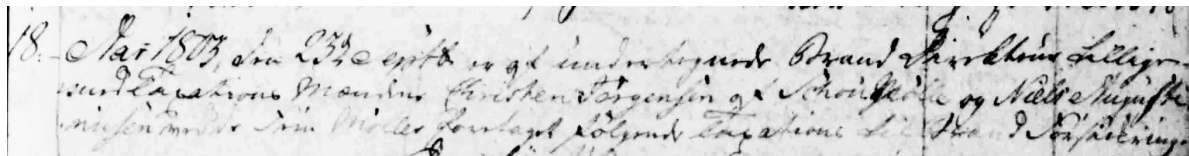 18. Aar 1803, den 23de Septb er af undertegnede Brand Direkteur tillige
med Taxations Mændene Christen Jørgensen af Schou Mølle og Niels Augusti
nusen foretaget følgende Taxations til Brand Forsikring